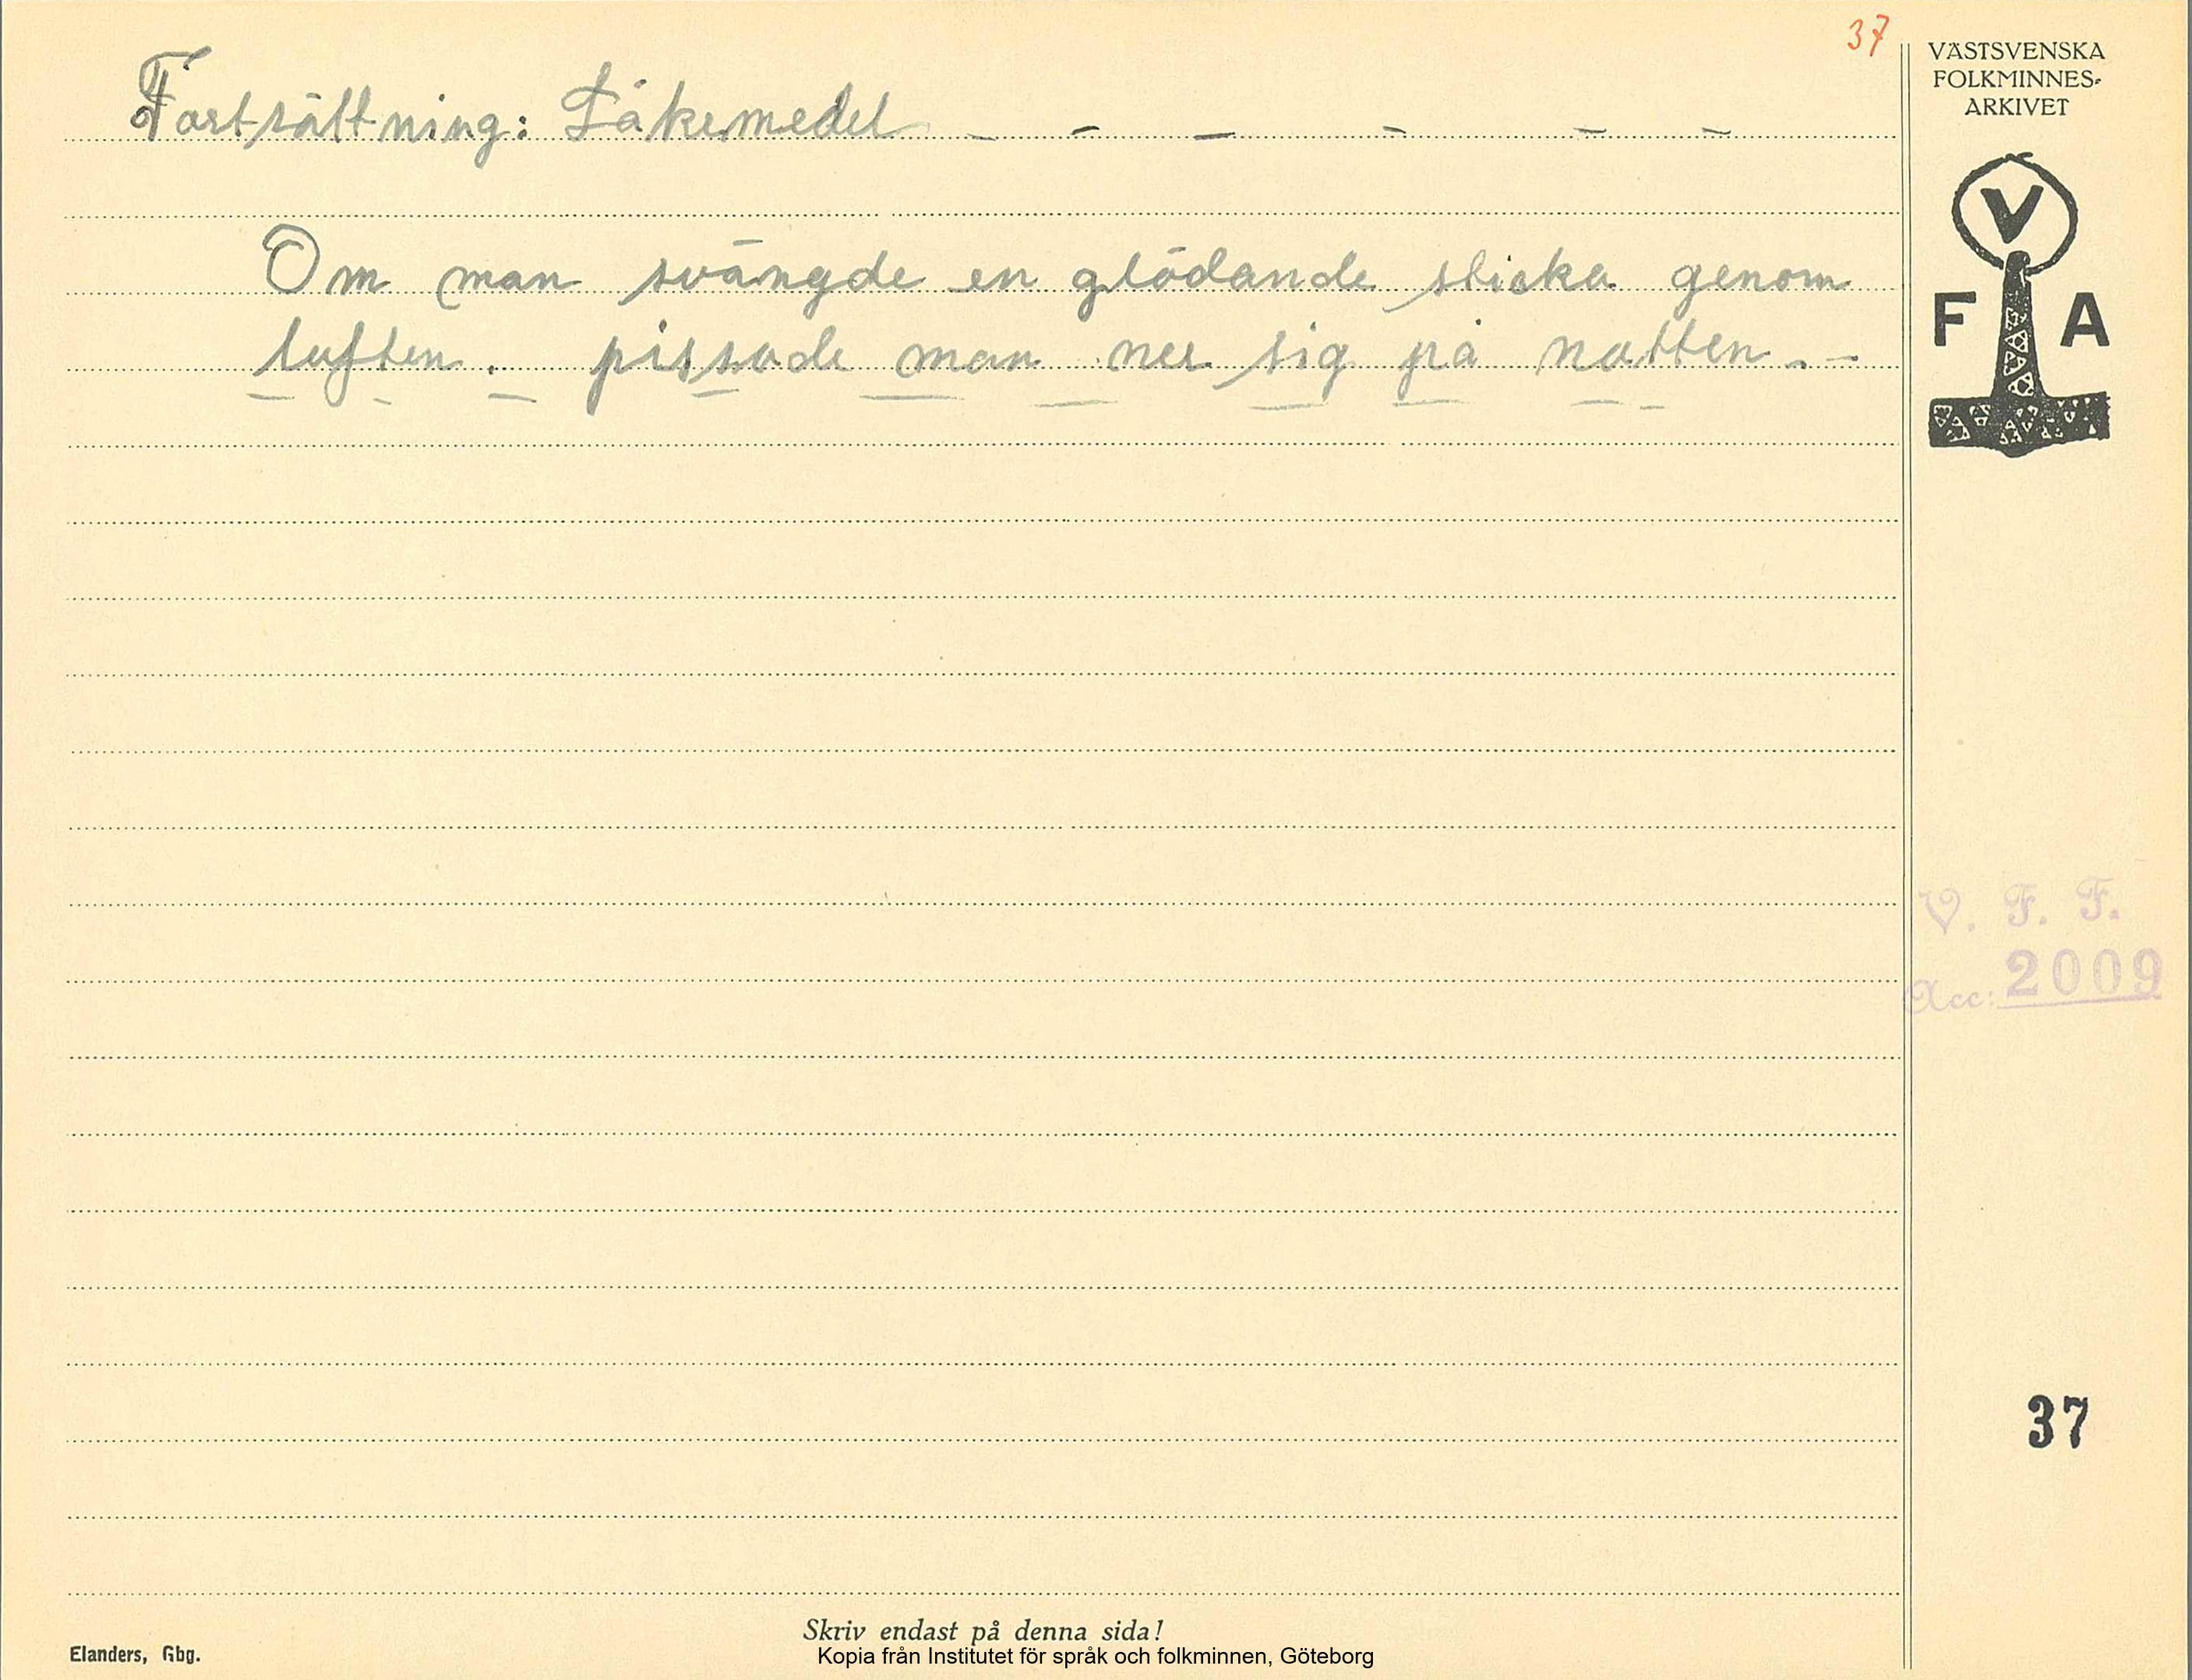 37
Fortsättning: Läkemedel – – – – – –
Om man svängde en glödande sticka genom
luften. pissade man ner sig på natten. –
VÄSTSVENSKA
FOLKMINNES-
ARKIVET
V
F A
V. F. F.
Acc: 2009
37
Skriv endast på denna sida!
Elanders, Gbg.
Kopia från Institutet för språk och folkminnen, Göteborg